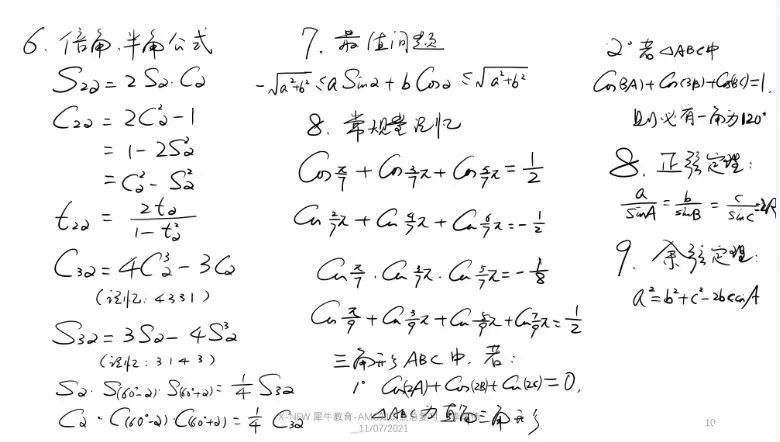 6. 倍角、半角公式
S₂₂ = 2S₂·C₂
C₂₂ = 2C₂² - 1
= 1 - 2S₂²
= C₂² - S₂²
t₂₂ = 2t₂ / (1 - t₂²)
C₃₂ = 4C₂³ - 3C₂
(记忆: 4331)
S₃₂ = 3S₂ - 4S₂³
(记忆: 3143)
S₂·S(60°-2)·S(60°+2) = 1/4 S₃₂
C₂·C(60°-2)C(60°+2) = 1/4 C₃₂
7. 最值问题
-√a²+b² ≤ aSin2 + bCos2 ≤ √a²+b²
8. 常规量记忆
Cos π/7 + Cos 3/7π + Cos 5/7π = 1/2
Cos 2/7π + Cos 4/7π + Cos 6/7π = -1/2
Cos π/7 · Cos 3/7π · Cos 5/7π = -1/8
Cos π/9 + Cos 3/9π + Cos 5/9π + Cos 7/9π = 1/2
三角形ABC中,若:
1° Cos(2A) + Cos(2B) + Cos(2C) = 0,
△ABC为直角三角形
2° 若△ABC中
Cos(3A) + Cos(3B) + Cos(3C) = 1,
则必有一角为120°
8. 正弦定理:
a/SinA = b/sinB = c/sinC = 2R
9. 余弦定理:
a² = b² + c² - 2bccosA
X-NEW 犀牛教育-AM
11/07/2021
10